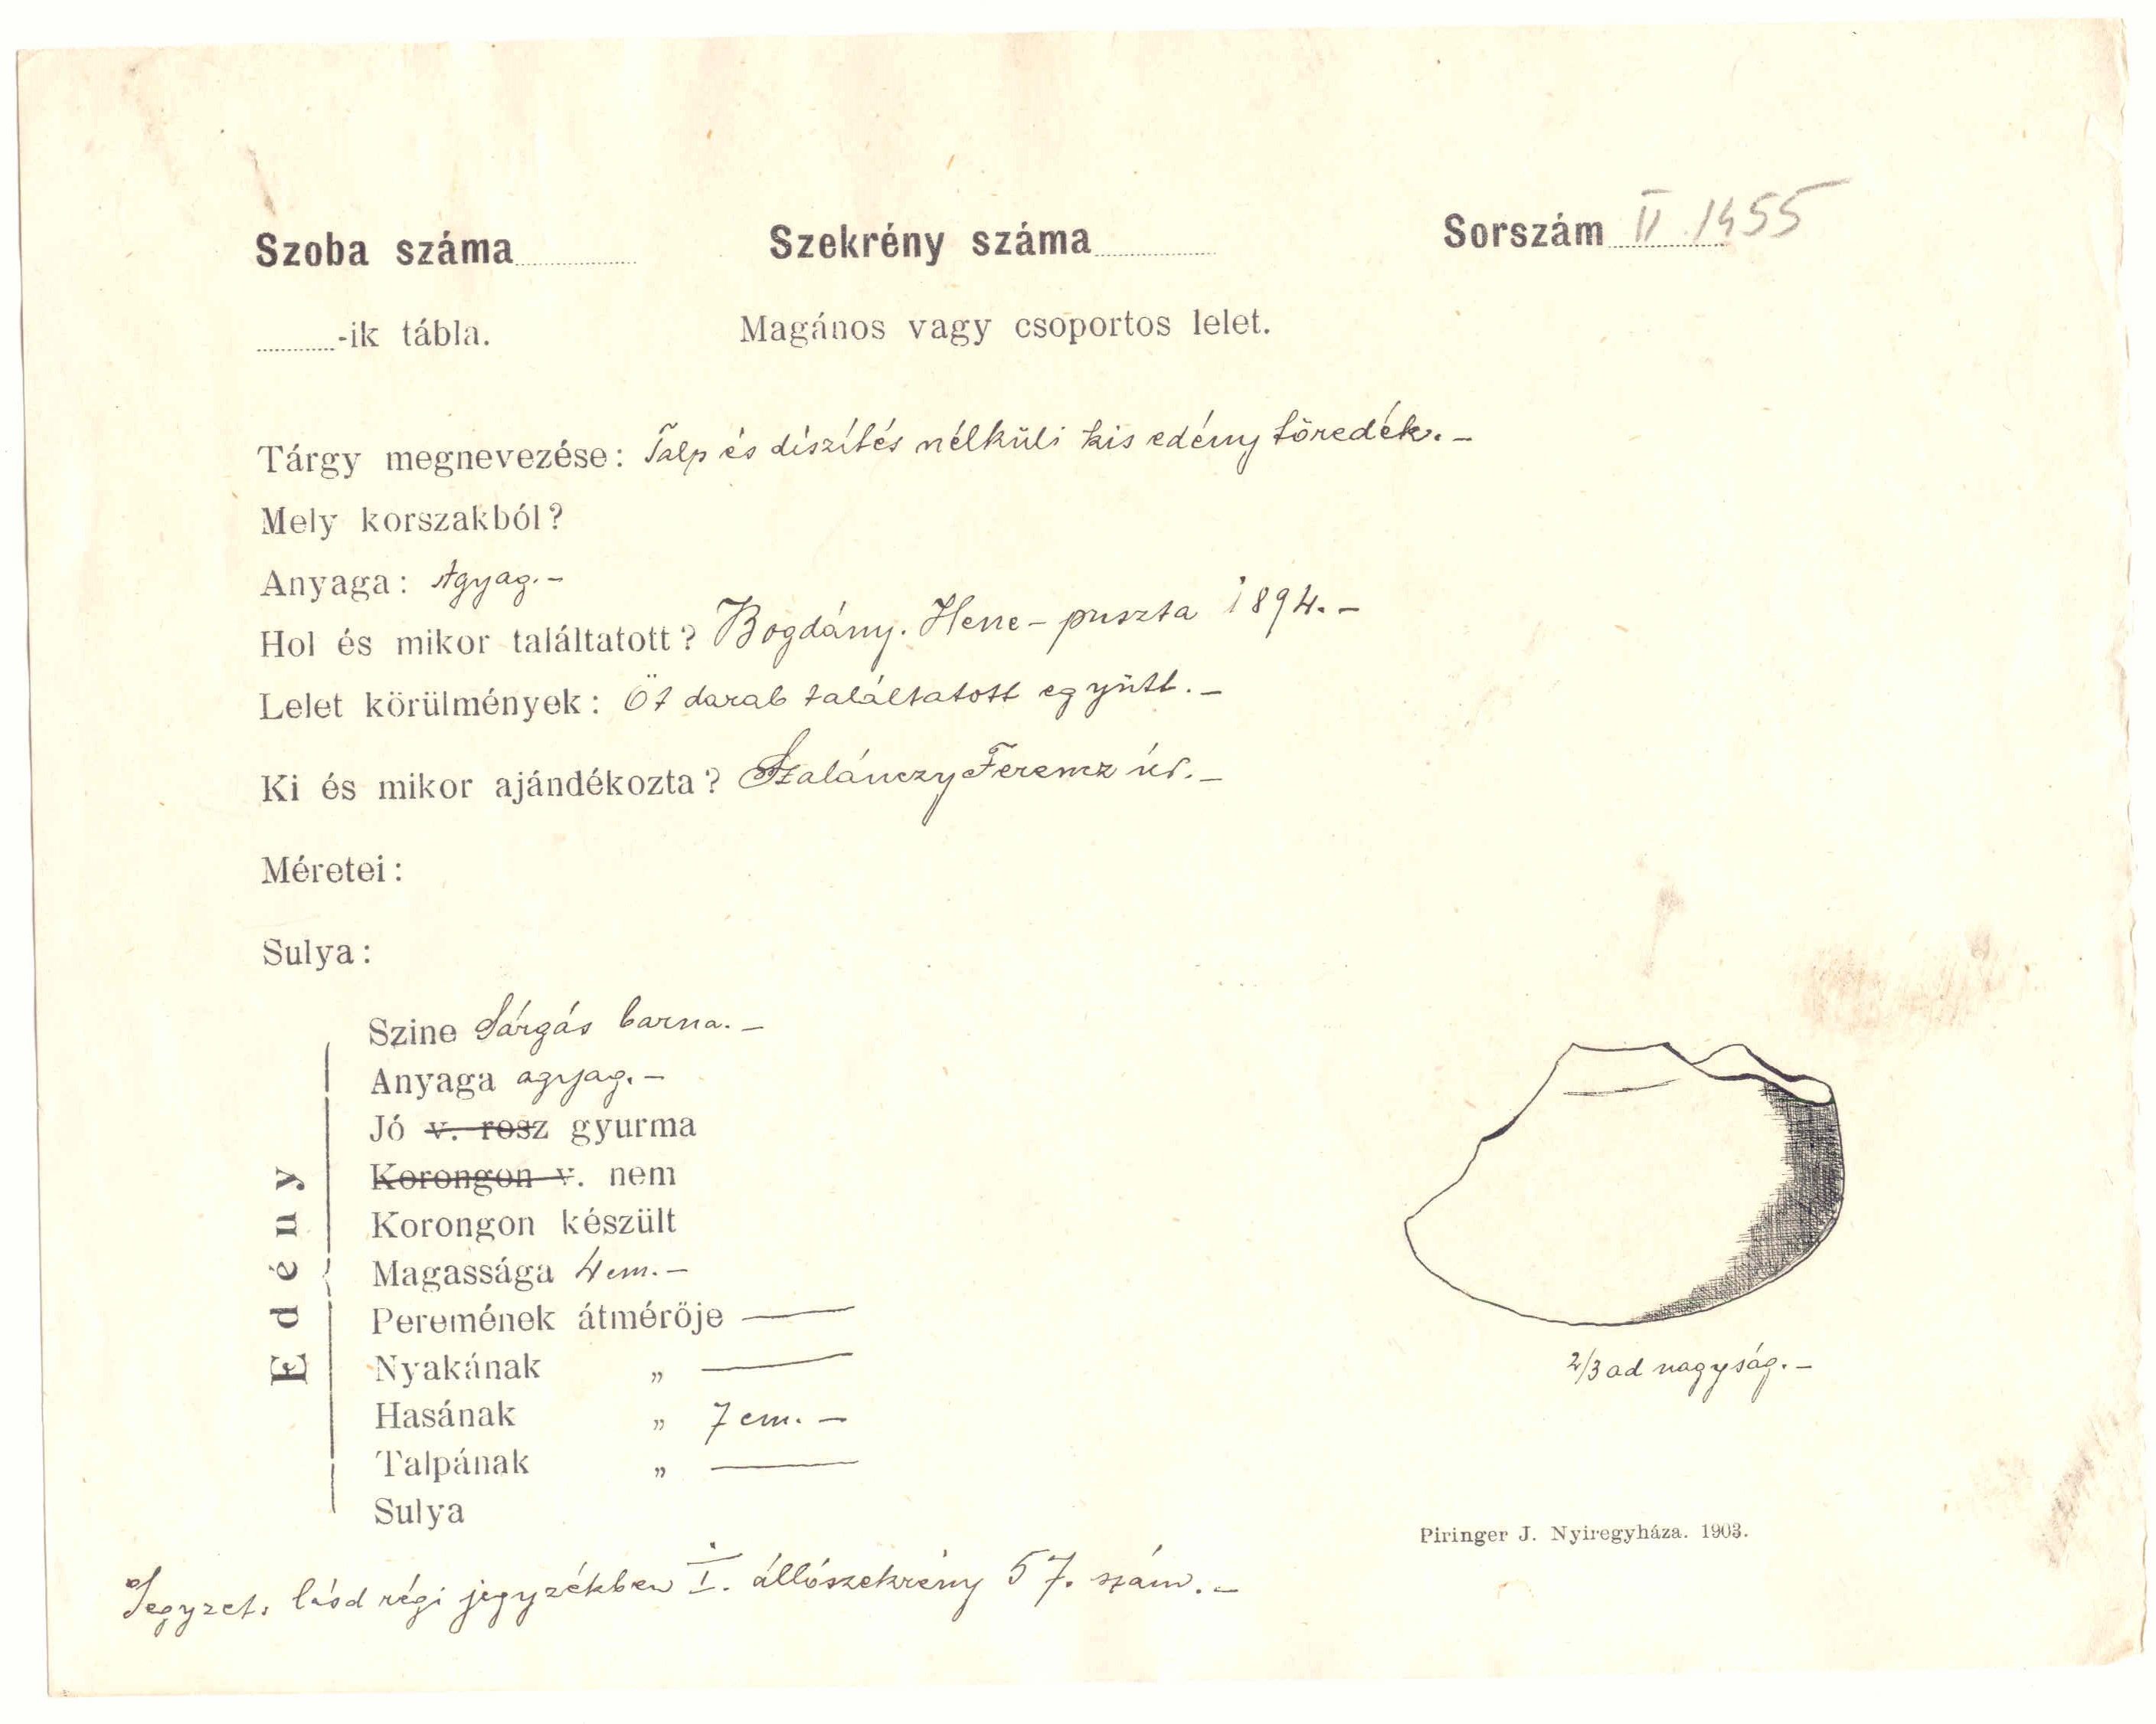 Szoba száma Szekrény száma Sorszám II. 1455
-ik tábla. Magános vagy csoportos lelet.
Tárgy megnevezése: Talp és díszítés nélküli kis edény töredék. –
Mely korszakból?
Anyaga: Agyag. –
Hol és mikor találtatott? Bogdány. Hene – puszta 1894. –
Lelet körülmények: Öt darab találtatott együtt. –
Ki és mikor ajándékozta? Szalánczy Ferencz úr. –
Méretei:
Sulya:
Edény
Szine Sárgás barna. –
Anyaga agyag. –
Jó v. rosz gyurma
Korongon v. nem
Korongon készült
Magassága 4 cm. –
Peremének átmérője —
Nyakának „ —
Hasának „ 7 cm. –
Talpának „ —
Sulya
2/3 ad nagyság. –
Piringer J. Nyiregyháza. 1903.
Jegyzet. lásd régi jegyzékben I. állószekrény 57. szám. –